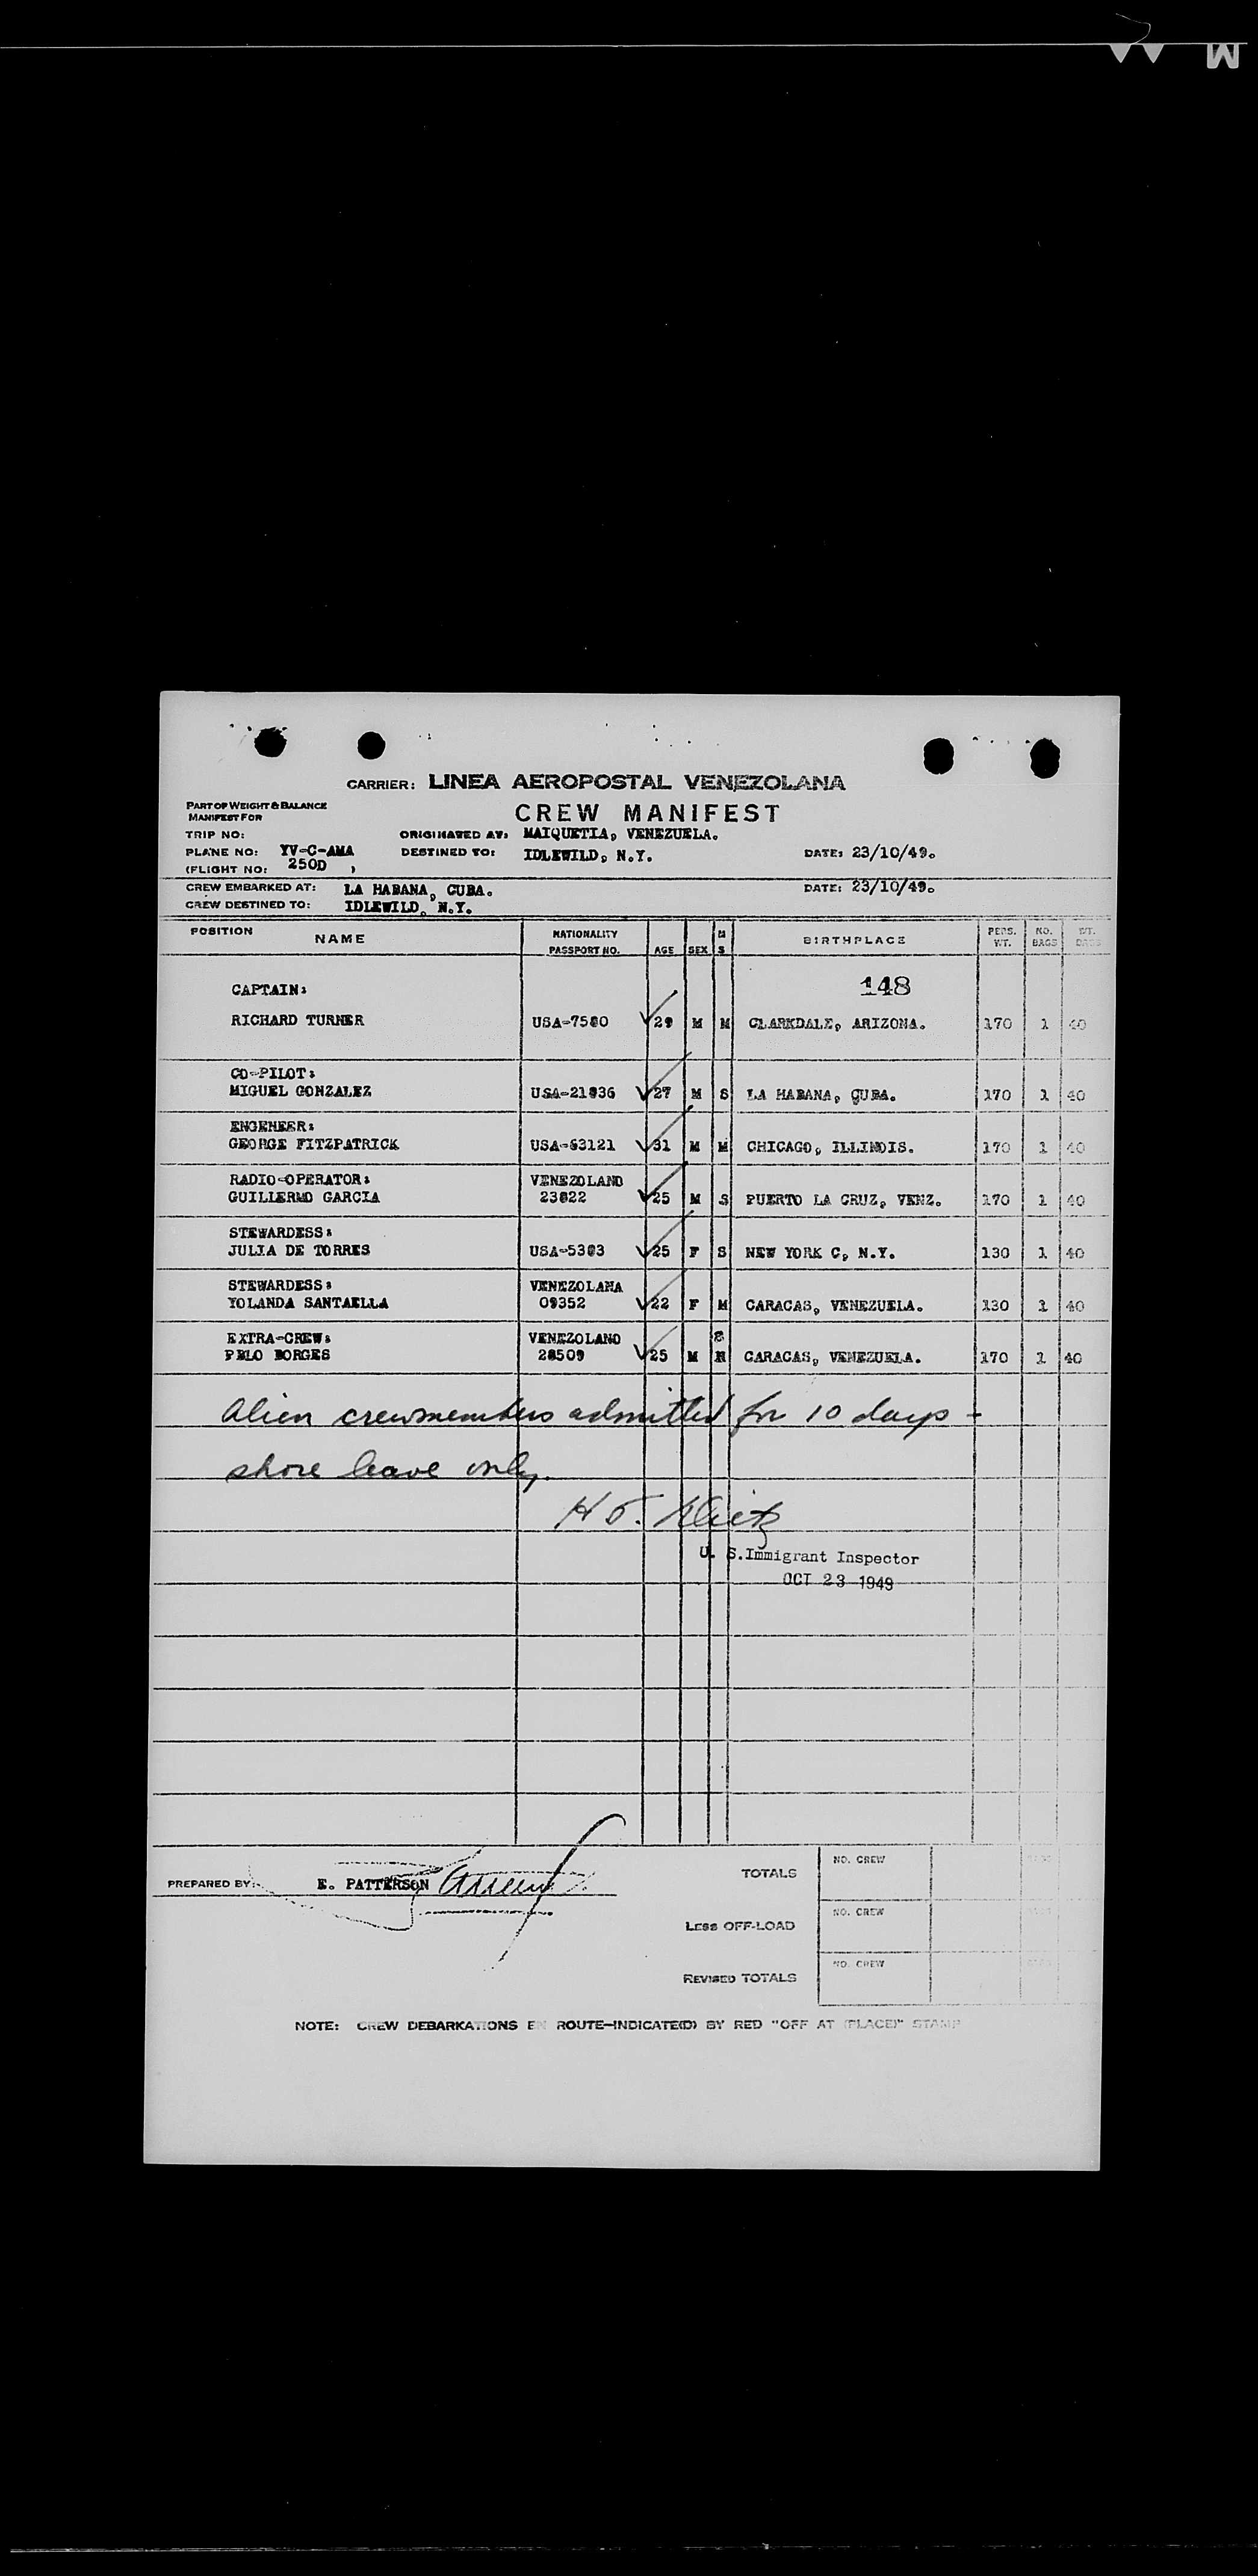 CARRIER: LINEA AEROPOSTAL VENEZOLANA
PART OF WEIGHT & BALANCE
MANIFEST FOR
CREW MANIFEST
TRIP NO: ORIGINATED AT: MAIQUETIA, VENEZUELA.
PLANE NO: YV-C-AMA DESTINED TO: IDLEWILD, N.Y. DATE: 23/10/49.
(FLIGHT NO: 250D )
CREW EMBARKED AT: LA HABANA, CUBA. DATE: 23/10/49.
CREW DESTINED TO: IDLEWILD, N.Y.
POSITION NAME NATIONALITY PASSPORT NO. AGE SEX M S BIRTHPLACE PERS. WT. NO. BAGS WT. BAGS
CAPTAIN: 148
RICHARD TURNER USA-7580 29 M M CLARKDALE, ARIZONA. 170 1 40
CO-PILOT:
MIGUEL GONZALEZ USA-21936 27 M S LA HABANA, CUBA. 170 1 40
ENGENEER:
GEORGE FITZPATRICK USA-63121 31 M M CHICAGO, ILLINOIS. 170 1 40
RADIO-OPERATOR: VENEZOLANO
GUILLERMO GARCIA 23822 25 M S PUERTO LA CRUZ, VENZ. 170 1 40
STEWARDESS:
JULIA DE TORRES USA-5303 25 F S NEW YORK C, N.Y. 130 1 40
STEWARDESS: VENEZOLANA
YOLANDA SANTAELLA 09352 22 F M CARACAS, VENEZUELA. 130 1 40
EXTRA-CREW: VENEZOLANO S
BORGES 28509 25 M CARACAS, VENEZUELA. 170 1 40
Alien crewmembers admitted for 10 days -
shore leave only.
U. S. Immigrant Inspector
OCT 23 1949
PREPARED BY: E. PATTERSON
TOTALS NO. CREW
LESS OFF-LOAD NO. CREW
REVISED TOTALS NO. CREW
NOTE: CREW DEBARKATIONS EN ROUTE-INDICATE(D) BY RED "OFF AT (PLACE)" STAMP